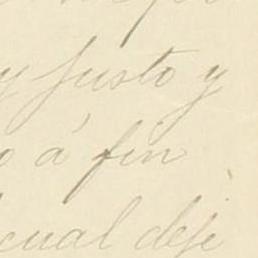 y justo y
o á fin
cual deje